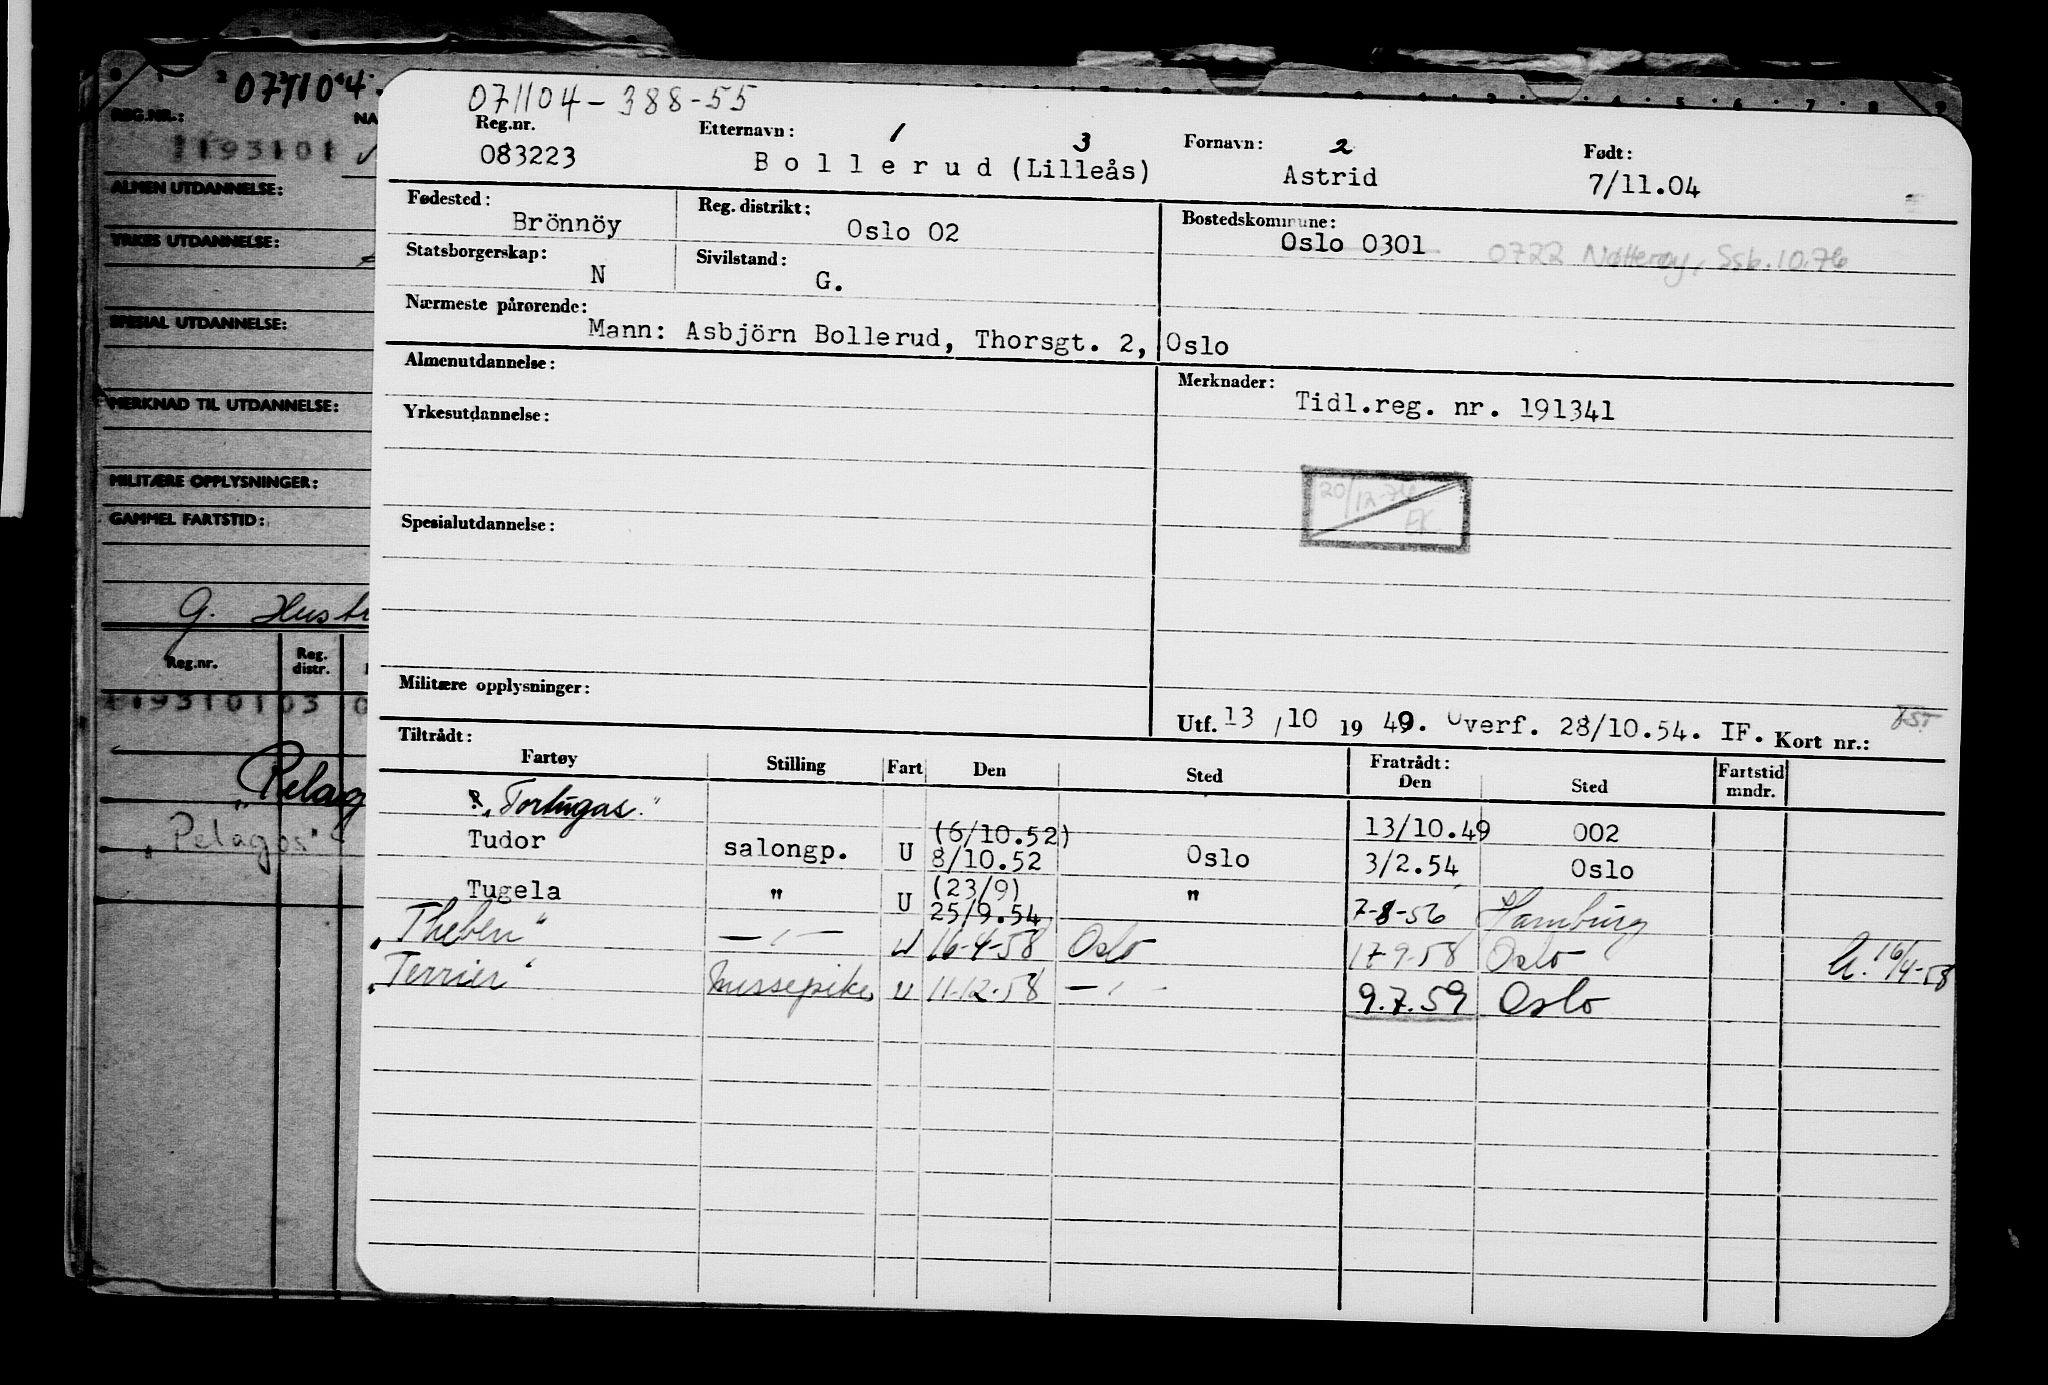 071104
REG.NR.:
NA
1193101
ALMEN UTDANNELSE:
YRKES UTDANNELSE:
SPESIAL UTDANNELSE:
MERKNAD TIL UTDANNELSE:
MILITÆRE OPPLYSNINGER:
GAMMEL FARTSTID:
G. Hust
Reg.nr. Reg. distr.
119310103
"Pelag
"Pelagos"
071104-388-55
Reg.nr. Etternavn: 1 3 Fornavn: 2 Født:
083223 Bollerud (Lilleås) Astrid 7/11.04
Fødested: Reg. distrikt: Bostedskommune:
Brönnöy Oslo 02 Oslo 0301 0722 Nøtterøy, Ssb.10.76
Statsborgerskap: Sivilstand:
N G.
Nærmeste pårørende:
Mann: Asbjörn Bollerud, Thorsgt. 2, Oslo
Almenutdannelse: Merknader:
Tidl.reg. nr. 191341
Yrkesutdannelse:
20/12-76
EK
Spesialutdannelse:
Militære opplysninger:
Utf. 13/10 1949. Overf. 28/10.54. IF. Kort nr.:
Tiltrådt: Fratrådt: Fartstid
Fartøy Stilling Fart Den Sted Den Sted mndr.
"Tortugas." 13/10.49 002
Tudor salongp. U (6/10.52) 8/10.52 Oslo 3/2.54 Oslo
Tugela " U (23/9) 25/9.54 " 7-8-56 Hamburg
"Theben" —"— U 16-4-58 Oslo 17-9-58 Oslo 16/4-58
"Terrier" messepike U 11-12-58 —"— 9.7.59 Oslo